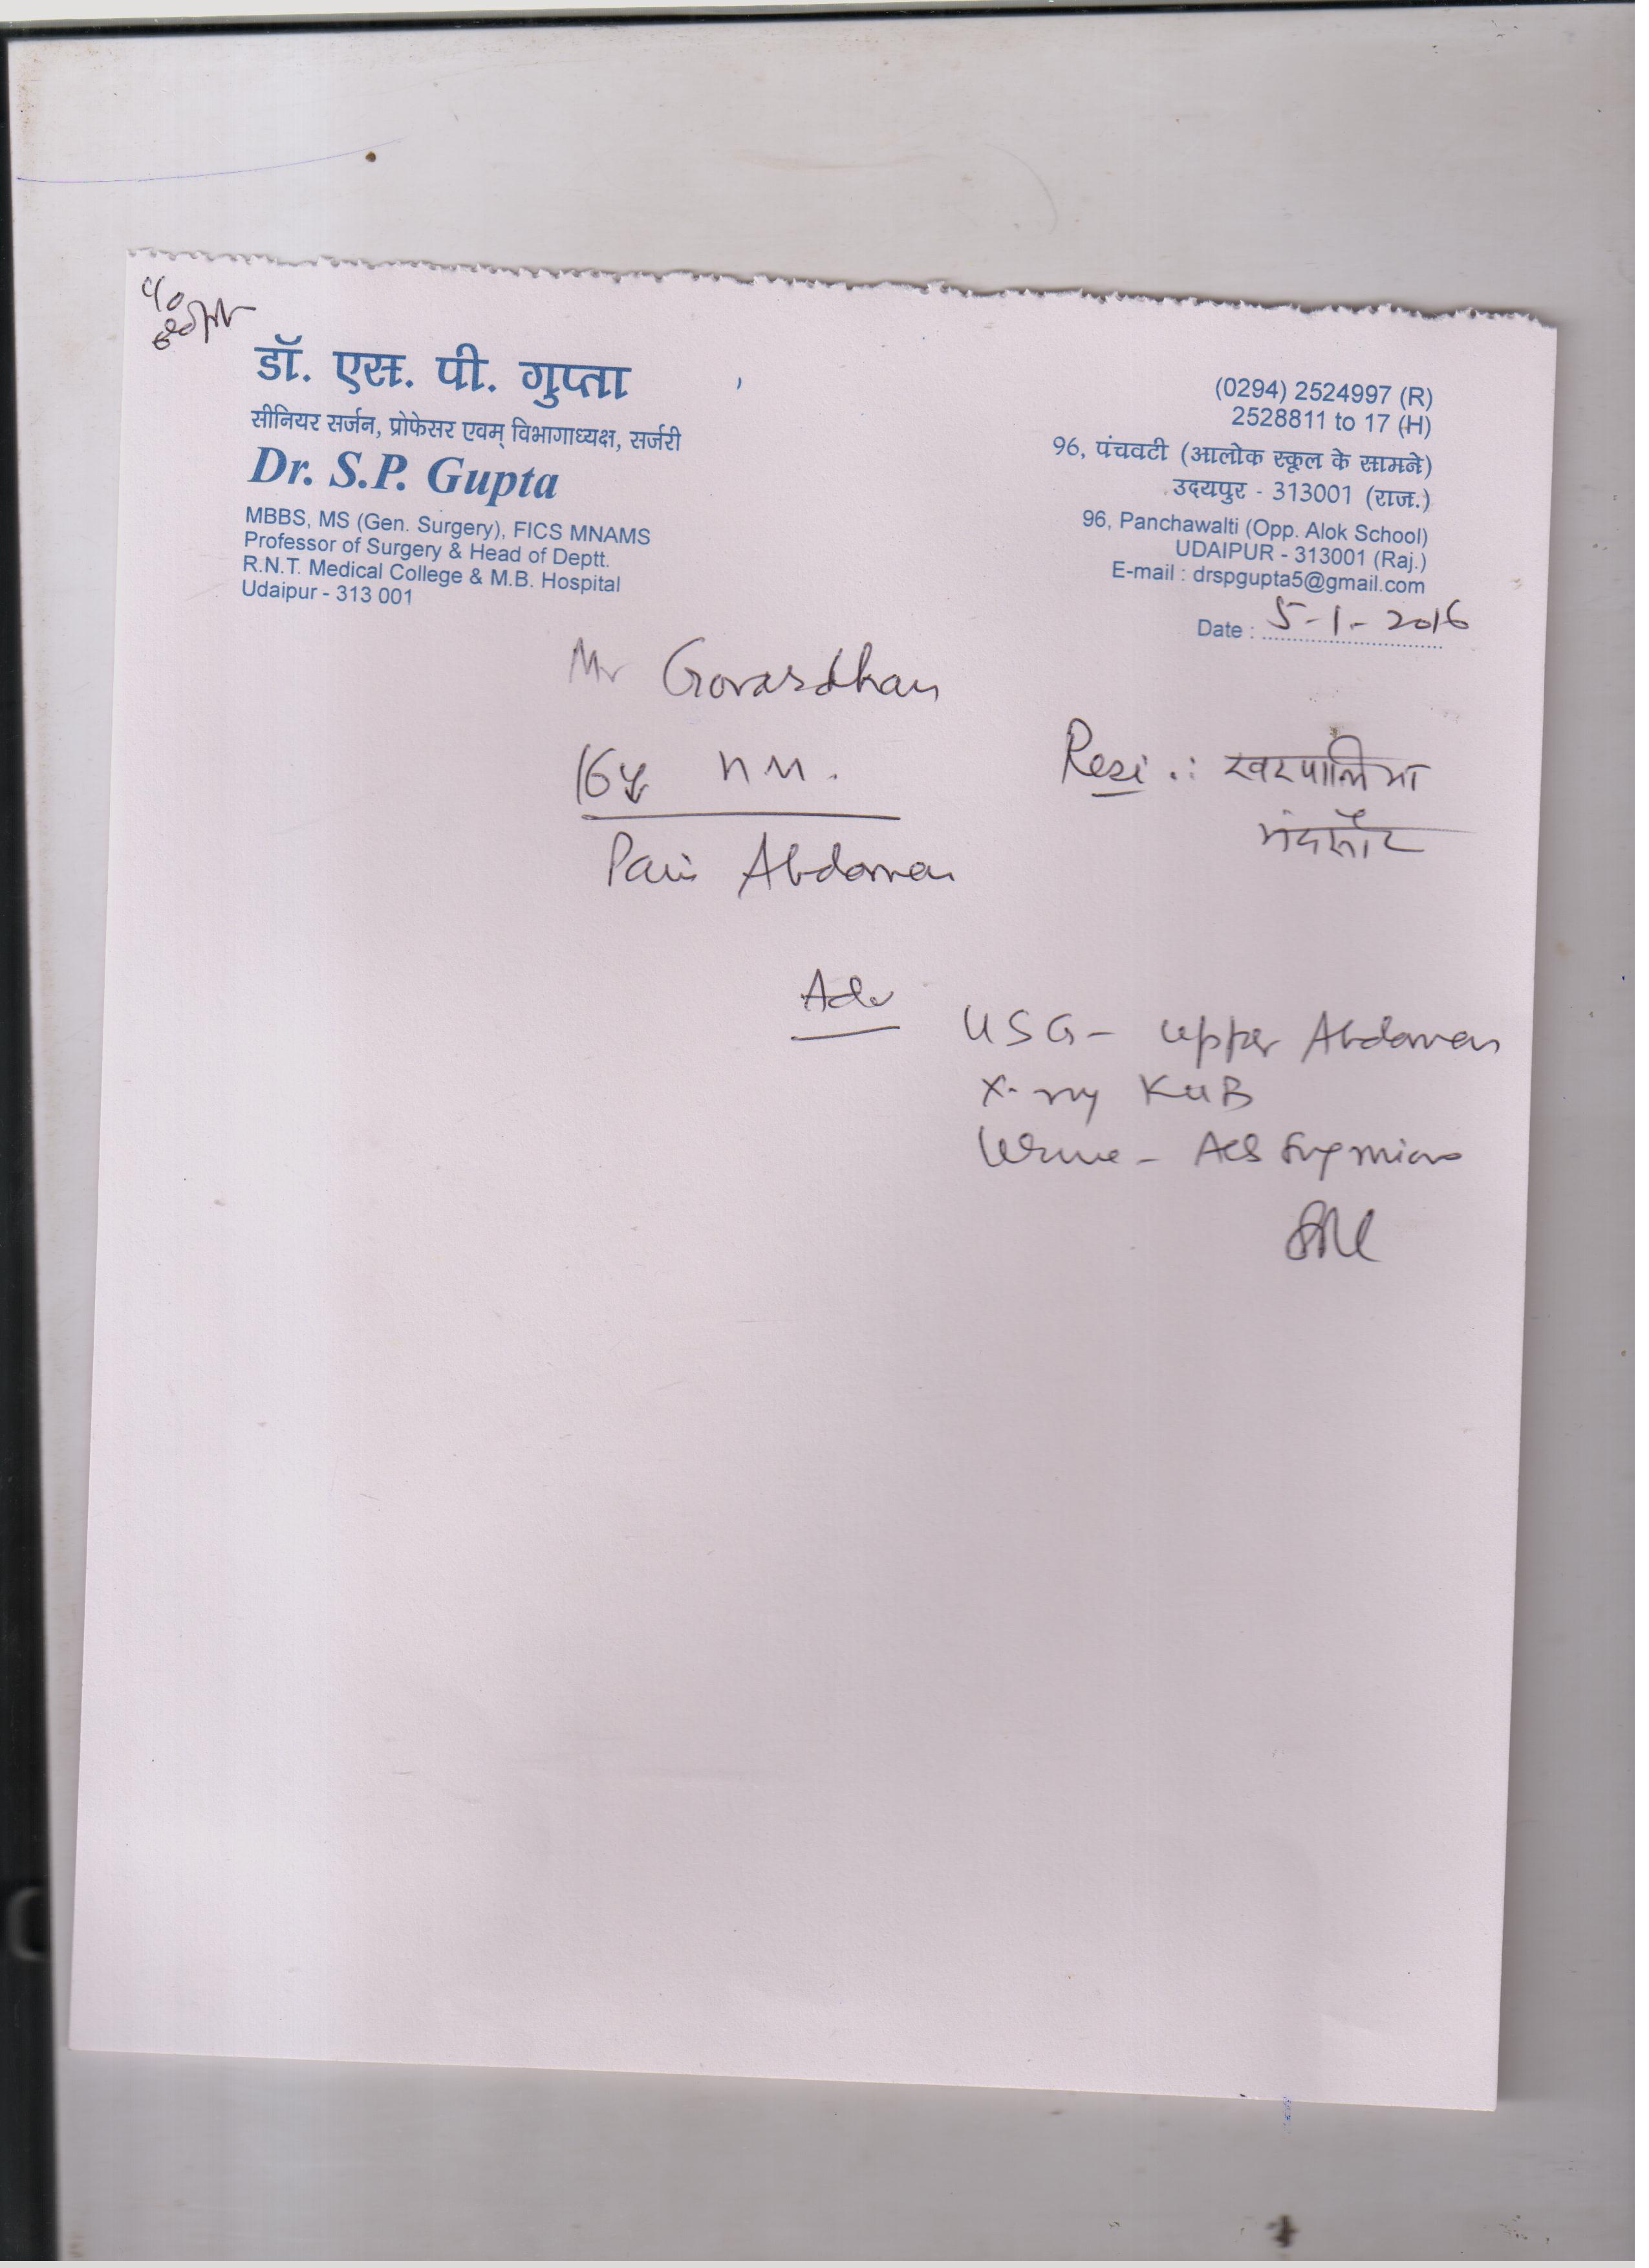 डॉ. एस. पी. गुप्ता
सीनियर सर्जन, प्रोफेसर एवम् विभागाध्यक्ष, सर्जरी
Dr. S.P. Gupta
MBBS, MS (Gen. Surgery), FICS MNAMS
Professor of Surgery & Head of Deptt.
R.N.T. Medical College & M.B. Hospital
Udaipur - 313 001
(0294) 2524997 (R)
2528811 to 17 (H)
96, पंचवटी (आलोक स्कूल के सामने)
उदयपुर - 313001 (राज.)
96, Panchawalti (Opp. Alok School)
UDAIPUR - 313001 (Raj.)
E-mail : drspgupta5@gmail.com
Date : 5-1-2016
Mr Govardhan
16y
Resi .: खरपालिया
मंदसौर
Pain Abdomen
Adv
USG - upper Abdomen
X-ray KUB
Urine - Alb Sug micro